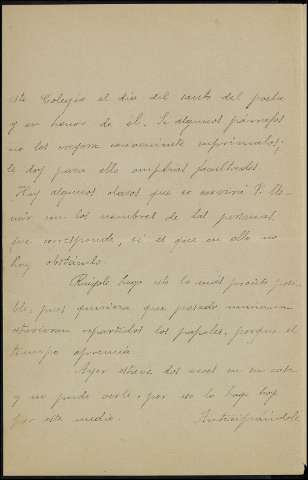 este Colegio el día del santo del poeta
y en honor de él. Si algunos párrafos
no los juzgara conveniente suprímalos;
le doy para ello amplias facultades.
Hay algunos claros que se servirá V. lle-
nar con los nombres de las personas
que corresponda, si es que en ello no
hay obstáculo.
Ruégole haga esto lo más pronto posi-
ble, pues quisiera que pasado mañana
estuvieran repartidos los papeles, porque el
tiempo apremia.
Ayer estuve dos veces en su casa
y no pude verle, por eso lo hago hoy
por este medio. Anticipándole